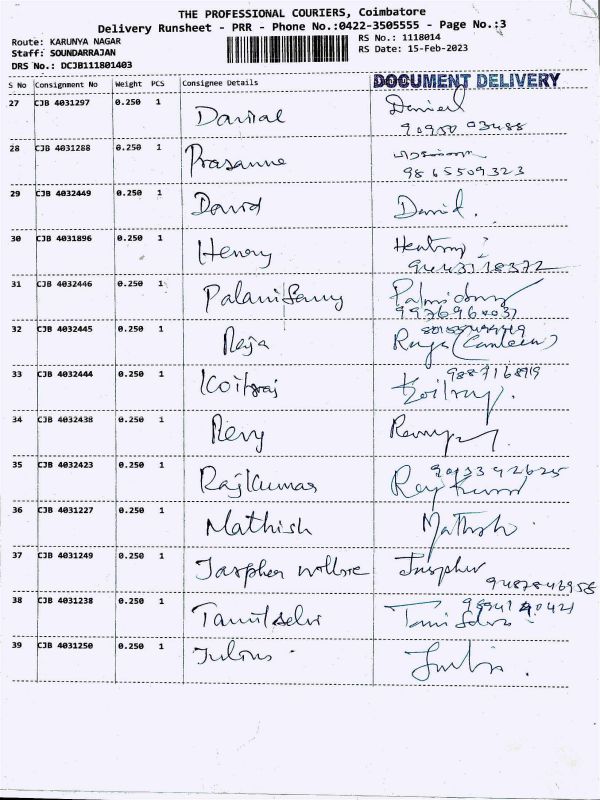 THE PROFESSIONAL COURIERS, Coimbatore
Delivery Runsheet - PRR - Phone No.:0422-3505555 - Page No.:3
Route: KARUNYA NAGAR RS No.: 1118014
Staff: SOUNDARRAJAN RS Date: 15-Feb-2023
DRS No.: DCJB111801403
S No Consignment No Weight PCS Consignee Details DOCUMENT DELIVERY
27 CJB 4031297 0.250 1 Danial Daniel
28 CJB 4031288 0.250 1 Prasanne
9865509323
29 CJB 4032449 0.250 1 David David.
30 CJB 4031896 0.250 1 Henry
31 CJB 4032446 0.250 1 Palanisamy
32 CJB 4032445 0.250 1 Reja Raja (Canteen)
33 CJB 4032444 0.250 1 Koilraj Koilraj.
34 CJB 4032438 0.250 1 Reny
35 CJB 4032423 0.250 1 Rajkumar Raj Kumar
36 CJB 4031227 0.250 1 Mathish
37 CJB 4031249 0.250 1 Jaspher
9487846958
38 CJB 4031238 0.250 1 Tamilselvi Tamil Selvi
39 CJB 4031250 0.250 1